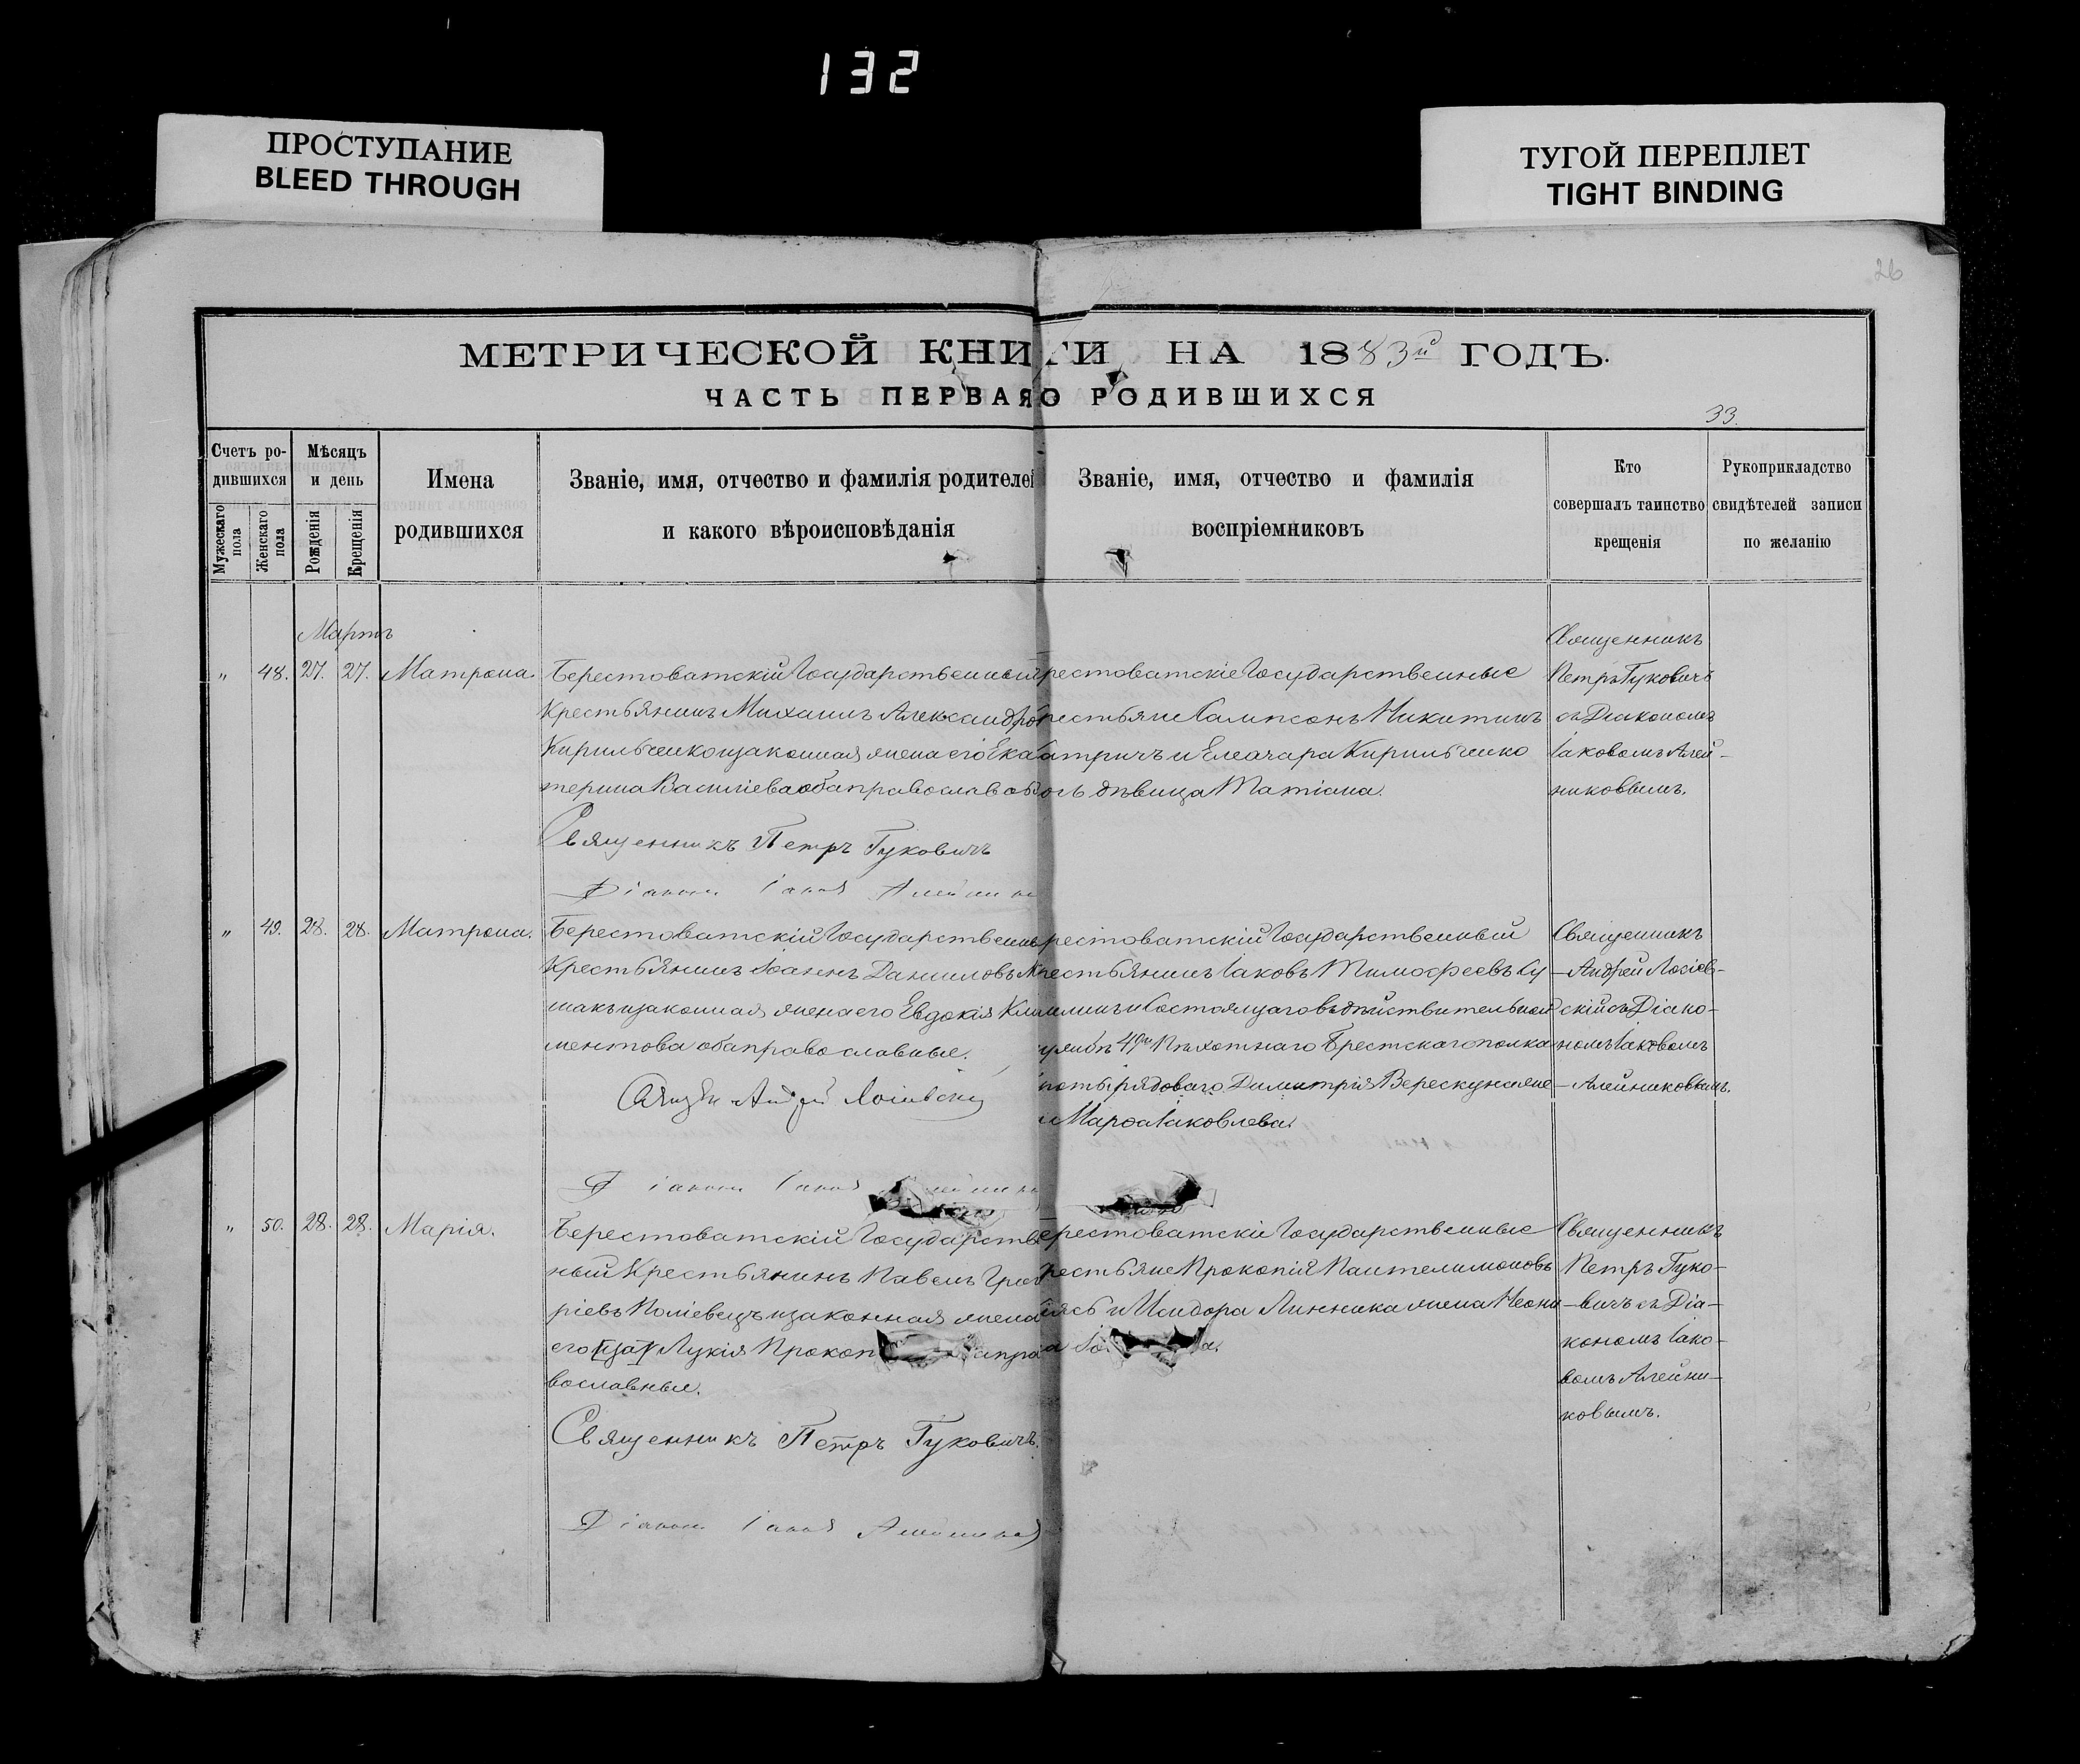 132
ПРОСТУПАНИЕ
BLEED THROUGH
ТУГОЙ ПЕРЕПЛЕТ
TIGHT BINDING
26
МЕТРИЧЕСКОЙ КНИГИ НА 1883й ГОДЪ.
ЧАСТЬ ПЕРВАЯ О РОДИВШИХСЯ
33.
Счетъ ро-
дившихся
Мужескаго пола
Женскаго пола
Мѣсяцъ
и день
Рожденія
Крещенія
Имена
родившихся
Званіе, имя, отчество и фамилія родителей
и какого вѣроисповѣданія
Званіе, имя, отчество и фамилія
воспріемниковъ
Кто
совершалъ таинство
крещенія
Рукоприкладство
свидѣтелей записи
по желанію
Мартъ
" 48. 27. 27. Матрона
Берестоватскій Государственный
Крестьянинъ Михаилъ Александро
Кирильченко и законная жена его Ека
терина Василіева оба православ
Священникъ Петръ Гуковичъ
Діаконъ Іаков Алейник
рестоватскіе Государственные
рестьяне Сампсонъ Никитинъ
и Елеазара Кирильченко
дочь дѣвица Татіана.
Священникъ
Петръ Гуковичъ
съ Діакономъ
Іаковомъ Алей-
никовымъ.
" 49. 28. 28. Матрона.
Берестоватскій Государственн
Крестьянинъ Іоаннъ Даниловъ
и законная жена его Евдокія Кли
ментова оба православные.
Свящ Андрей Лосіевскій
Діаконъ Іаков
рестоватскій Государственный
рестьянинъ Іаковъ Тимофеевъ Су-
и Состоящаго въ дѣйствительной
49го Пѣхотнаго Брестскаго полка
рядоваго Димитрія Верескуна же-
Марѳа Іаковлева.
Священникъ
Андрей Лосіев-
скій съ Діако-
номъ Іаковомъ
Алейниковымъ.
" 50. 28. 28. Марія.
Берестоватскій Государствен
ный Крестьянинъ Павелъ Григо
ріевъ Поліевецъ и законная жена
его Лукія Прокоп
вославные.
Священникъ Петръ Гуковичъ.
Діаконъ Іаков Алейников
ерестоватскіе Государственные
рестьяне Прокопій Пантелимоновъ
и Исидора Линника жена Неони-
Священникъ
Петръ Гуко-
вичъ съ Діа-
кономъ Іако-
вомъ Алейни-
ковымъ.